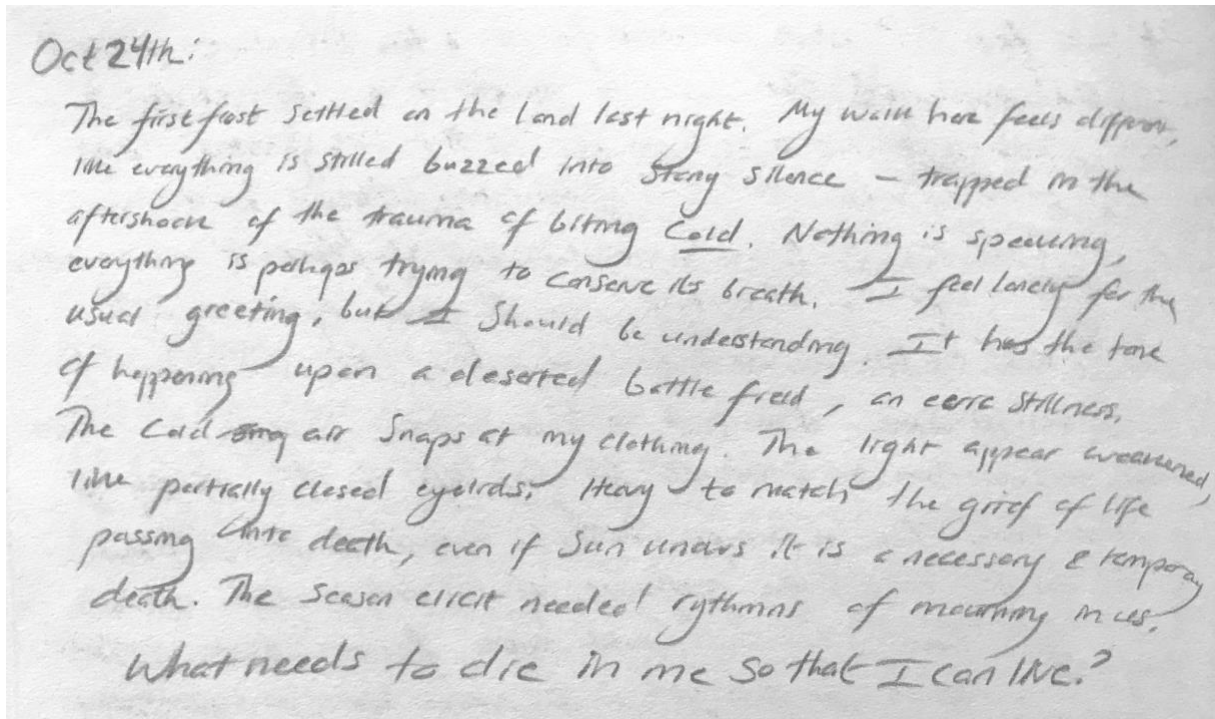 Oct 24th:
The first frost settled on the land last night. My walk here feels different,
like everything is stilled buzzed into stony silence – trapped in the
aftershock of the trauma of biting Cold. Nothing is speaking,
everything is perhaps trying to conserve its breath. I feel lonely for the
usual greeting, but I should be understanding. It has the tone
of happening upon a deserted battle field, an eerie stillness.
The Cold air snaps at my clothing. The light appear weakened,
like partially closed eyelids. Heavy to match the grief of life
passing into death, even if Sun knows it is a necessary & temporary
death. The season elicit needed rythmns of mourning in us.
What needs to die in me so that I can live?